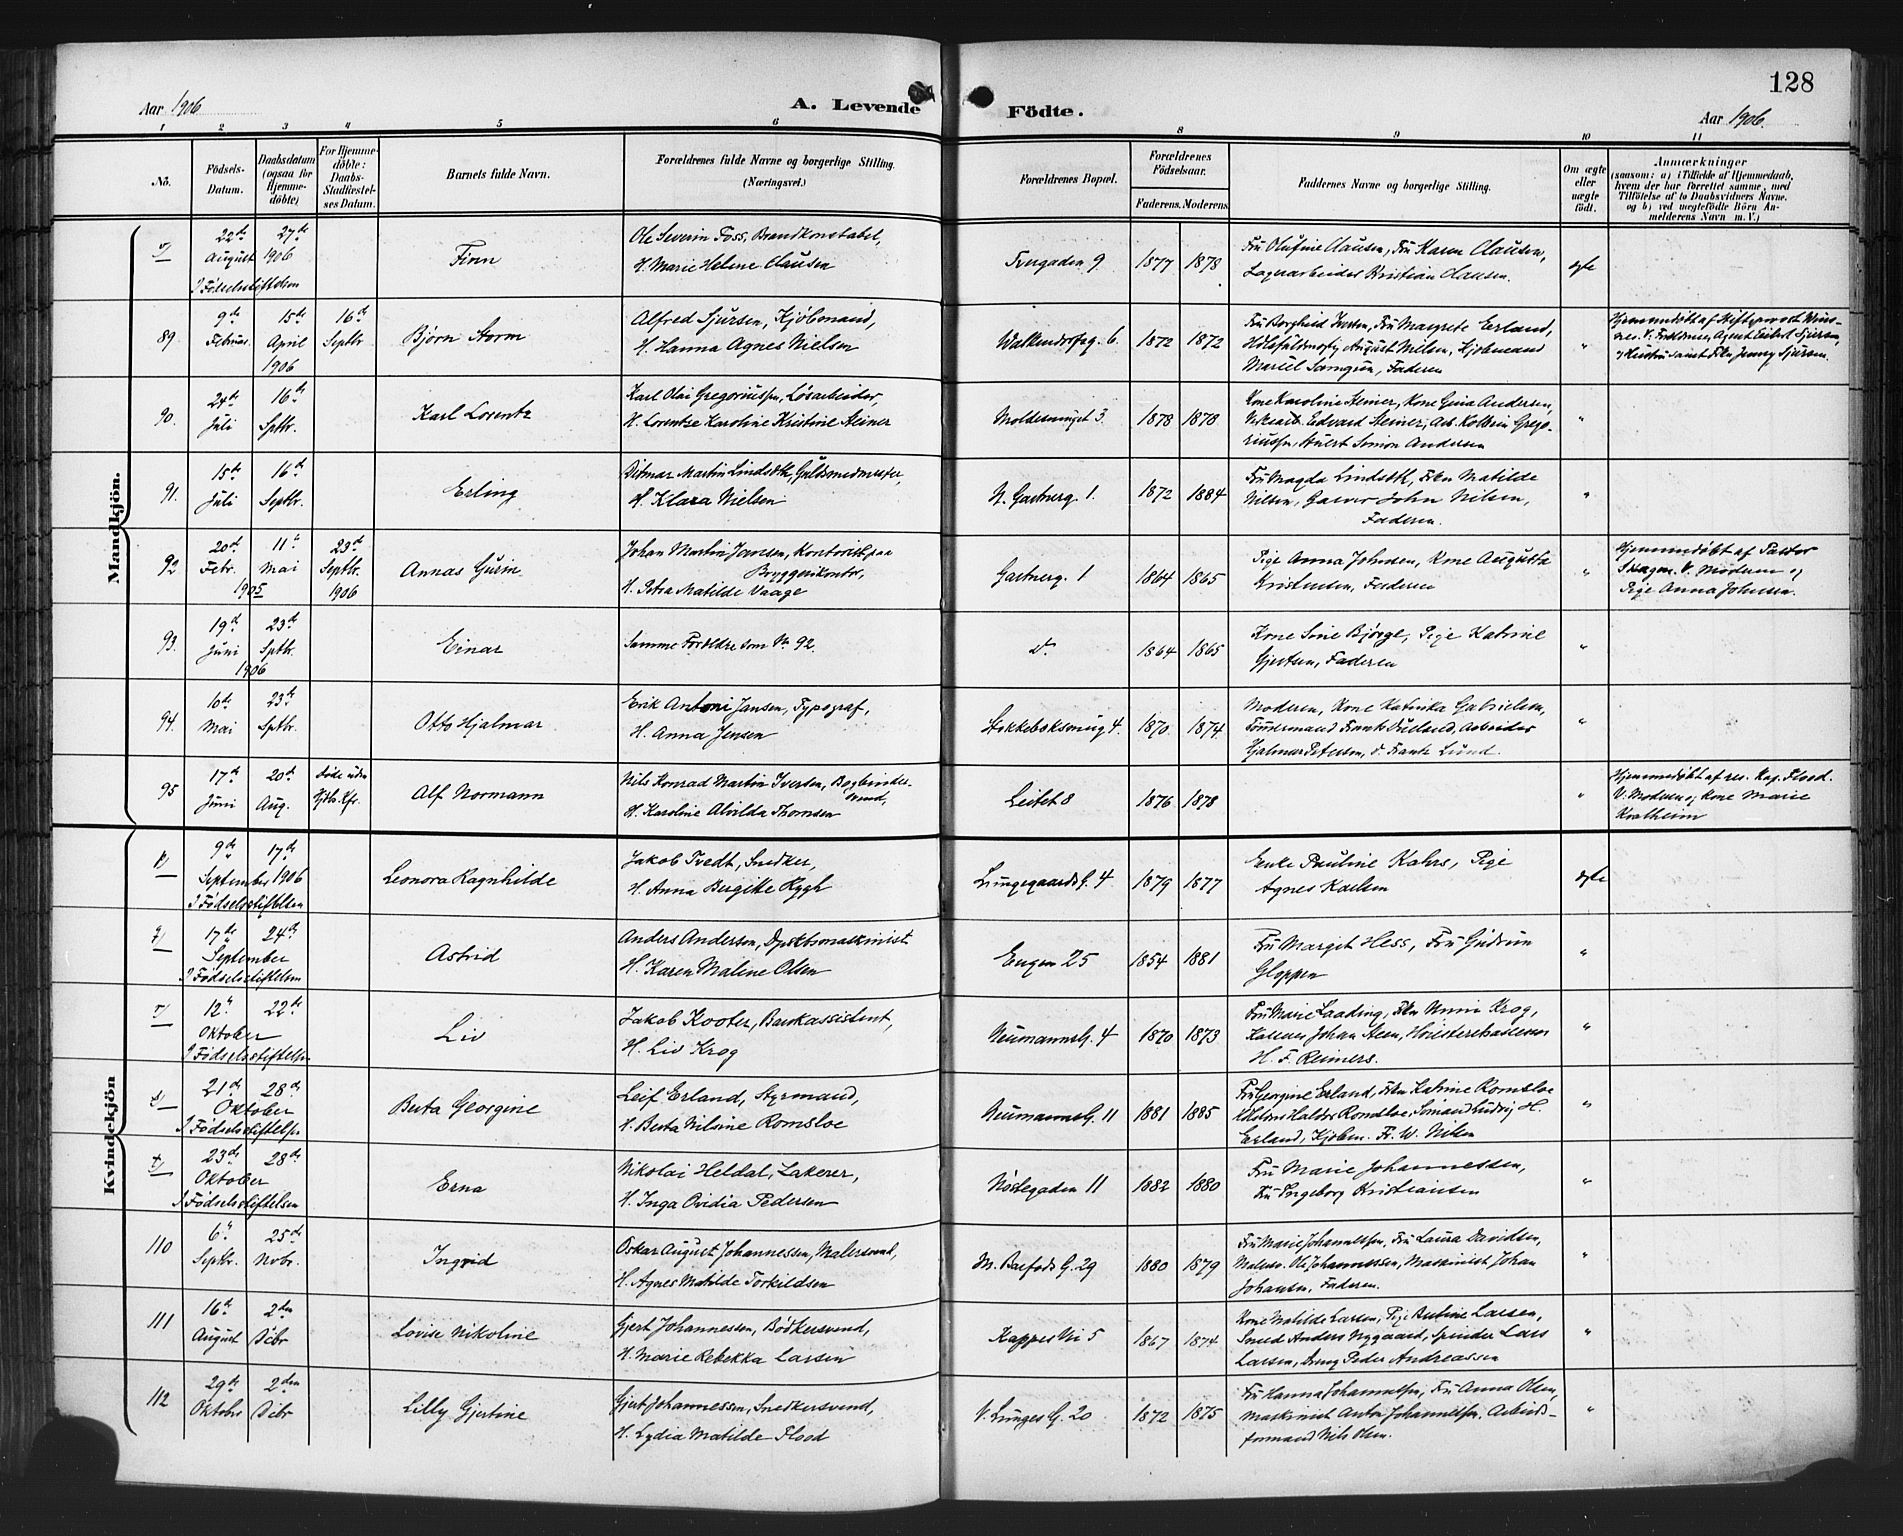 128
Aar 1906
A. Levende
Födte.
Aar 1906.
1 2 3 4 5 6 8 9 10 11
No.
Födsels-
Datum.
Daabsdatum
(ogsaa for
Hjemme-
döbte)
For Hjemme-
döbte:
Daabs-
Stadfæstel-
ses Datum.
Barnets fulde Navn.
Forældrenes fulde Navne og borgerlige Stilling.
(Næringsvei.)
Forældrenes Bopæl.
Forældrenes
Födselsaar.
Faderens. Moderens.
Faddernes Navne og borgerlige Stilling.
Om ægte
eller
uægte
födt.
Anmærkninger
(saasom: a) i Tilfælde af Hjemmedaab,
hvem der har forrettet samme, med
Tilföielse af to Daabsvidners Navne.
og b) ved uægtefödte Börn An-
melderens Navn m. V.)
Mandkjön.
22de 27de
August 1906
I Födselsstiftelsen
Finn
Ole Severin Foss, Brandkonstabel,
H. Marie Helene Clausen
Tvergaden 9
1877 1878
Fru Olufine Clausen, Fru Karen Clausen,
Lagerarbeider Kristian Clausen.
ægte
89.
9de Februar
15de April 1906
16de Septbr.
Bjørn Storm
Alfred Sjursen, Kjøbmand,
H. Hanna Agnes Nielsen
Walkendorfsg. 6.
1872 1872
Fru Borghild Iversen, Fru Margrete Erland,
August Nilsen, Kjøbmand
Faderen
"
Hjemmedøbt af Stiftsprovst
Agent Sjursen,
Hustru samt Frk. Jenny Sjursen.
90.
24de Juli
16de Sptbr.
Karl Lorentz
Karl Olai Gregoriussen, Løsarbeider,
H. Lorentze Karoline Kristine Steiner
Moldesmuget 3
1878 1878
Kone Karoline Steiner, Kone Gina Andersen,
Edvard Steiner, Arb. Kolbein Grego-
riussen, Simon Andersen
"
91.
15de Juli
16de Septbr.
Erling
Ditmar Martin Lindseth, Guldsmedmester,
H. Klara Nielsen
N. Gartnerg. 1.
1872 1884
Fru Magda Lindseth, Frkn Matilde
Nilsen, Garver John Nilsen,
Faderen.
"
92
20de Febr. 11te Mai 1905
23de Septbr. 1906
Annas Gurin
Johan Martin Jansen, Kontorist paa
Bryggerikontor,
H. Petra Matilde Vaage
Gartnerg. 1
1864 1865
Pige Anna Johnsen, Kone Augusta
Kristensen, Faderen
"
Hjemmedøbt af Pastor
Skagen. V. Moderen og
Pige Anna Johnsen.
93.
19de Juni 23de Sptbr. 1906
Einar
Samme Forældre som No 92.
d.
1864 1865
Kone Sine Bjørge, Pige Katrine
Gjertsen, Faderen
"
94.
10de Mai
23de Sptbr.
Otto Hjalmar
Erik Antoni Jansen, Typograf,
H. Anna Jensen
1870 1874
Moderen, Kone Katinka Gabrielsen,
Arbeider
Hjalmar Petersen, Lund.
"
95
17de Juni
20de Aug.
Alf Normann
Nils Konrad Martin Iversen, Bogbinder-
svend,
H. Karoline Alvilda Thomsen
Leitet 8
1876 1878
"
Hjemmedøbt af res. Kap. Flood.
V. Moderen og Kone Marie
Kvalheim
Kvindekjön
p)
9de 17de
September 1906
I Fødselsstiftelsen
Leonora Ragnhilde
Jakob Tvedt, Snedker,
H. Anna Birgitte Rygh
Lungegaards G. 4
1879 1877
Enke Pauline Kahrs, Pige
Agnes Karlsen
ægte
q)
17de 24de
September
I Fødselsstiftelsen
Astrid
Anders Anderson,
H. Karen Maline Olsen
Engen 25
1854 1881
Fru Margit Hess, Fru Gudrun
Gloppen
"
r)
12te 22de
Oktober
I Fødselsstiftelsen
Liv
Jakob Kooter, Bankassistent,
H. Liv Krog
Neumanns G. 4
1870 1873
Fru Marie Laading, Frkn Mimi Krog,
Johan Steen,
H. F. Reimers.
"
s)
21de 28de
Oktober
I Fødselsstiftelsen
Berta Georgine
Leif Erland, Styrmand,
H. Berta Nilsine Romsloe
Neumanns G. 11
1881 1885
Fru Georgine Erland, Frkn Katrine Romsloe
Haldor Romsloe, Sømand Ludvig H.
Erland, Kjøbm. Fr. W. Nilsen
"
t)
23de 28de
Oktober
I Fødselsstiftelsen
Erna
Nikolai Heldal, Lakerer,
H. Inga Ovidia Pedersen
Nøstegaden 11
1882 1880
Fru Marie Johannessen,
Fru Ingeborg Kristiansen
"
110
6te Septbr.
25de Novbr.
Ingrid
Oskar August Johannessen, Malersvend,
H. Agnes Matilde Torkildsen
M. Barfods G. 29
1880 1879
Fru Marie Johannessen, Fru Laura Davidsen,
Ole Johannessen, Maskinist Johan
Johansen, Faderen.
"
111
16de August
2den Dcbr
Lovise Nikoline
Gjert Johannessen, Bødkersvend,
H. Marie Rebekka Larsen
Kappes Vei 5
1867 1874
Kone Matilde Larsen, Pige Larsen,
Smed Anders Nygaard, Lars
Larsen, Dreng Peder Andreassen
"
112
29de Oktober
2den Dcbr
Lilly Gjertine
Gjert Johannessen, Snedkersvend,
H. Lydia Matilde Flood
V. Lunges G. 20
1872 1875
Fru Hanna Johannessen, Fru Anna Olsen,
Maskinist Anton Johannessen. Arbeids-
formand Nils Olsen.
"